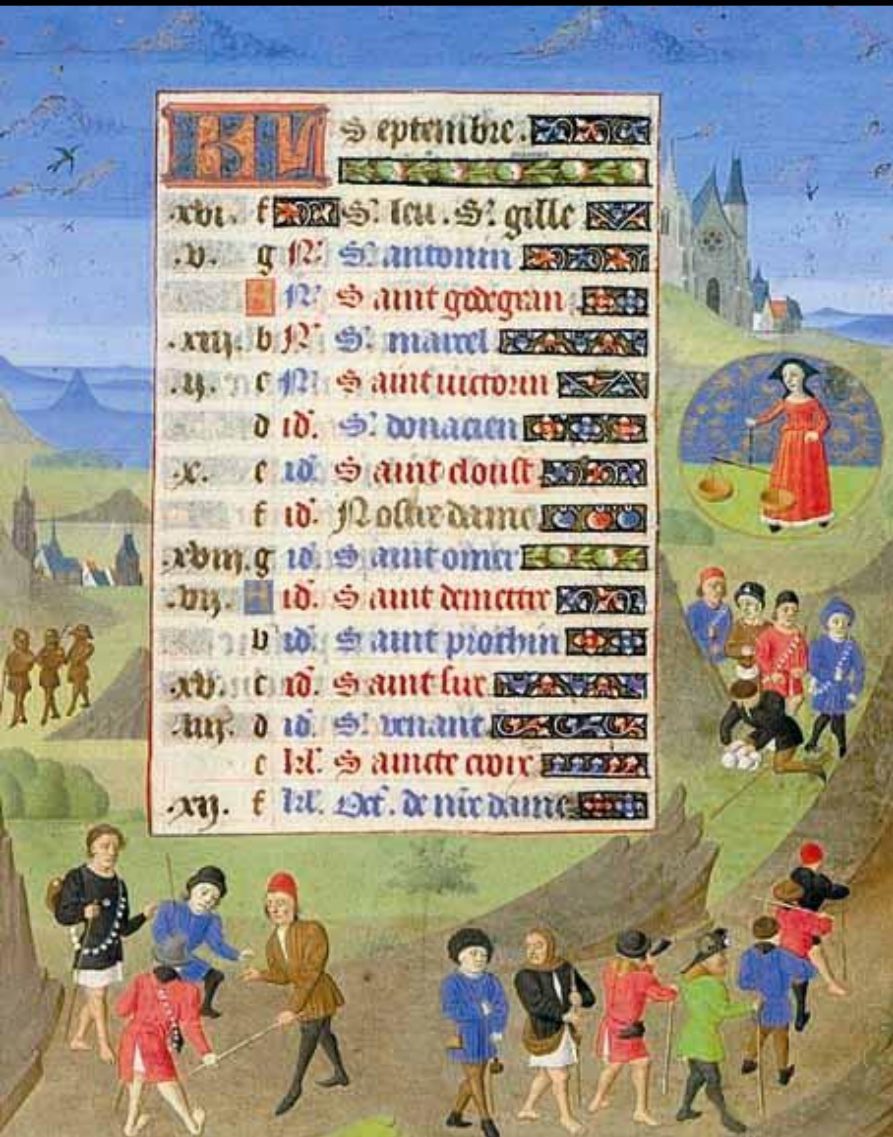 KL Septembre.
.xvi. f S. leu. S. gille
.v. g N. S. antonin
A N. Saint godegran
.xiij. b N. S. marcel
.ij. c N. Saint victorin
d id. S. donacien
.x. e id. Saint cloust
f id. Nostre dame
.xviij. g id. Saint omer
.vij. A id. Saint demettre
b id. Saint prothin
.xv. c id. Saint sur
.iiij. d id. S. venant
e kl. Saincte croix
.xij. f kl. Oct. de nre dame